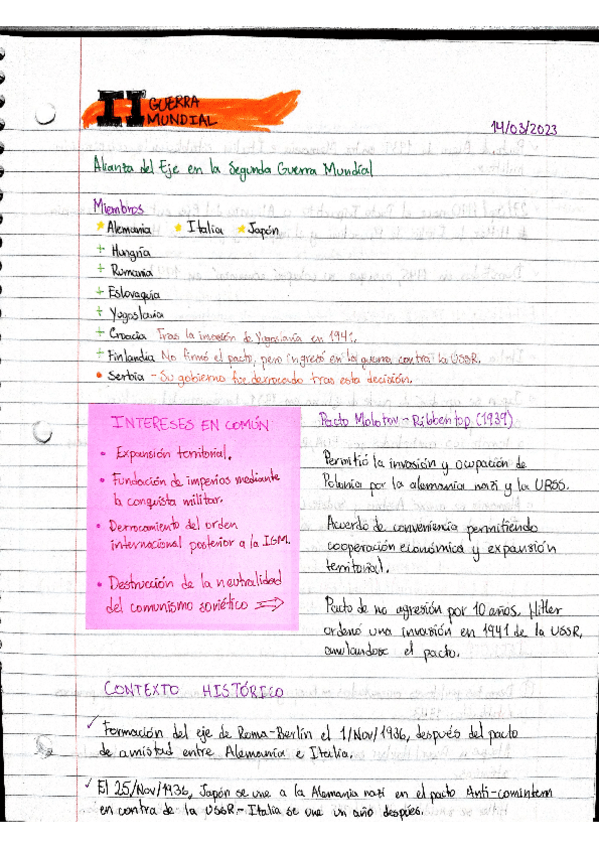 II GUERRA
MUNDIAL
14/03/2023
Alianza del Eje en la Segunda Guerra Mundial
Miembros
Alemania Italia Japón
+ Hungría
+ Rumanía
+ Eslovaquia
+ Yugoslavia
+ Croacia Tras la invasión de Yugoslavia en 1941.
+ Finlandia No firmó el pacto, pero ingresó en la guerra contra la USSR.
• Serbia - Su gobierno fue derrocado tras esta decisión.
INTERESES EN COMÚN
• Expansión territorial.
• Fundación de imperios mediante
la conquista militar.
• Derrocamiento del orden
internacional posterior a la IGM.
• Destrucción de la neutralidad
del comunismo soviético ⇒
Pacto Molotov - Ribbentop (1939)
Permitió la invasión y ocupación de
Polonia por la alemania nazi y la URSS.
Acuerdo de conveniencia permitiendo
cooperación económica y expansión
territorial.
Pacto de no agresión por 10 años. Hitler
ordenó una invasión en 1941 de la USSR,
anulandose el pacto.
CONTEXTO HISTÓRICO
✓ Formación del eje de Roma-Berlín el 1/Nov/1936, después del pacto
de amistad entre Alemania e Italia.
✓ El 25/Nov/1936, Japón se une a la Alemania nazi en el pacto Anti-comintern
en contra de la USSR.- Italia se une un año después.